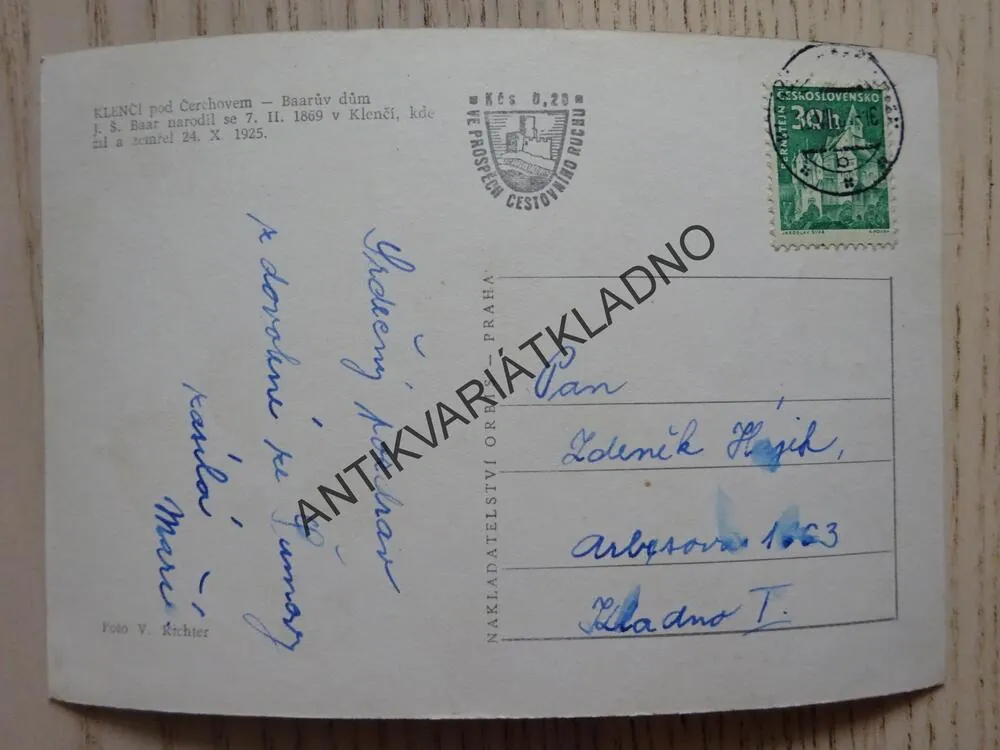 KLENČÍ pod Čerchovem — Baarův dům
J. Š. Baar narodil se 7. II. 1869 v Klenčí, kde
žil a zemřel 24. X. 1925.
Kčs 0,20
VE PROSPĚCH CESTOVNÍHO RUCHU
ČESKOSLOVENSKO
30h
PERNŠTEJN
JAROSLAV ŠVÁB
b
Srdečný pozdrav
z dovolené ze Šumavy
zasílá
Marie
NAKLADATELSTVÍ ORBIS — PRAHA
Pan
Zdeněk Hájek,
Arbesova 1663
Kladno I.
Foto V. Richter
ANTIKVARIÁTKLADNO